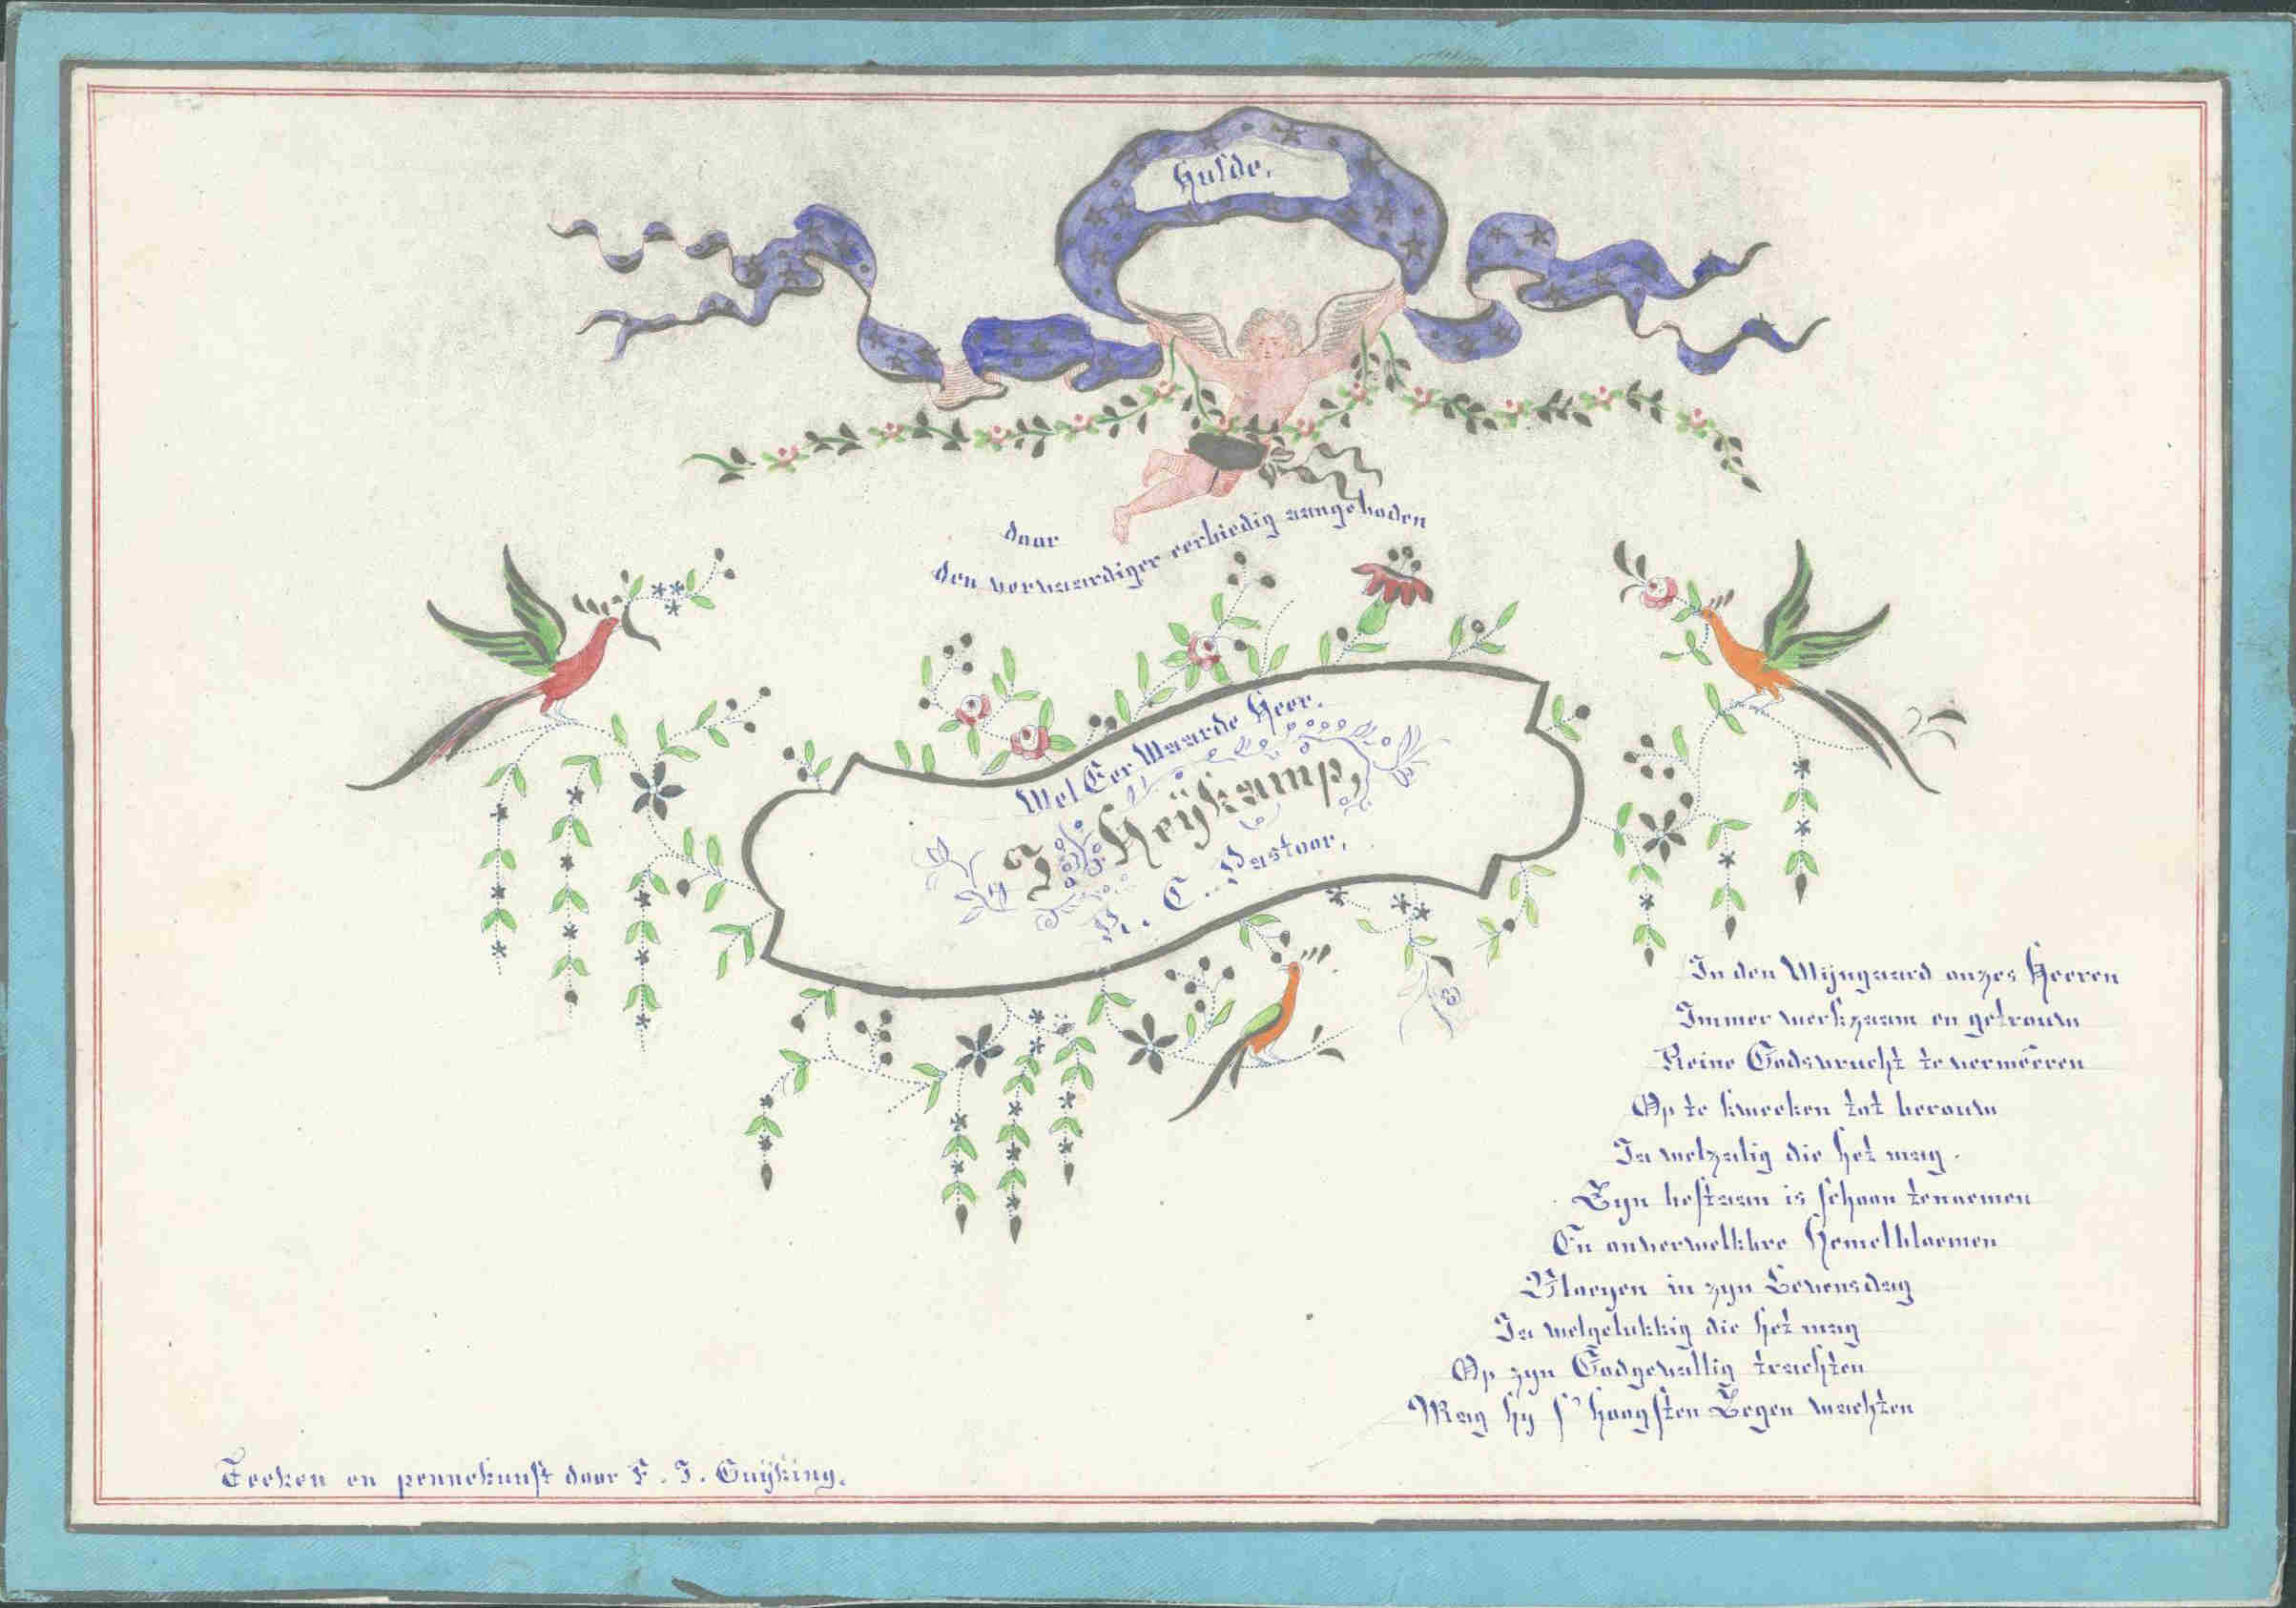 Hulde,
door
den vervaardiger eerbiedig aangeboden
Wel Eer Waarde Heer.
J Heijkamp,
R. C. Pastoor,
In den Wijngaard onzes Heeren
Immer werkzaam en getrouw
Reine Godsvrucht te verméeren
Op te kweeken tot berouw
Ja welzalig die het mag.
Zyn bestaan is schoon tenoemen
En onverwelkbre Hemelbloemen
Bloeyen in zyn Levensdag
Ja welgelukkig die het mag
Op zyn Godgevallig trachten
Mag hy s' hoogsten Zegen wachten
Teeken en pennekunst door F. J. Guijking.